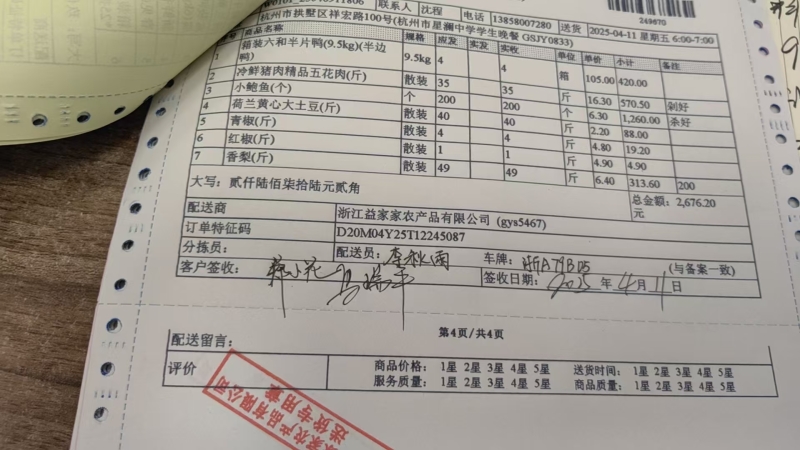 联系人 沈程 电话 13858007280 送货 2025-04-11 星期五 6:00-7:00
249870
杭州市拱墅区祥宏路100号(杭州市星澜中学学生晚餐 GSJY0833)
商品名称 规格 应发 实发 实收 单位 单价 小计 备注
1 箱装六和半片鸭(9.5kg)(半边鸭) 9.5kg 4 4 箱 105.00 420.00
2 冷鲜猪肉精品五花肉(斤) 散装 35 35 斤 16.30 570.50 剁好
3 小鲍鱼(个) 个 200 200 个 6.30 1,260.00 杀好
4 荷兰黄心大土豆(斤) 散装 40 40 斤 2.20 88.00
5 青椒(斤) 散装 4 4 斤 4.80 19.20
6 红椒(斤) 散装 1 1 斤 4.90 4.90
7 香梨(斤) 散装 49 49 斤 6.40 313.60 200
大写：贰仟陆佰柒拾陆元贰角 总金额: 2,676.20元
配送商 浙江益家家农产品有限公司 (gys5467)
订单特征码 D20M04Y25T12245087
分拣员: 配送员: 李秋雨 车牌: 浙A79B05 (与备案一致)
客户签收: 签收日期: 2025 年 4 月 11 日
第4页/共4页
配送留言:
评价 商品价格: 1星 2星 3星 4星 5星 送货时间: 1星 2星 3星 4星 5星
服务质量: 1星 2星 3星 4星 5星 商品质量: 1星 2星 3星 4星 5星
家农产品有限公司
送货专用章